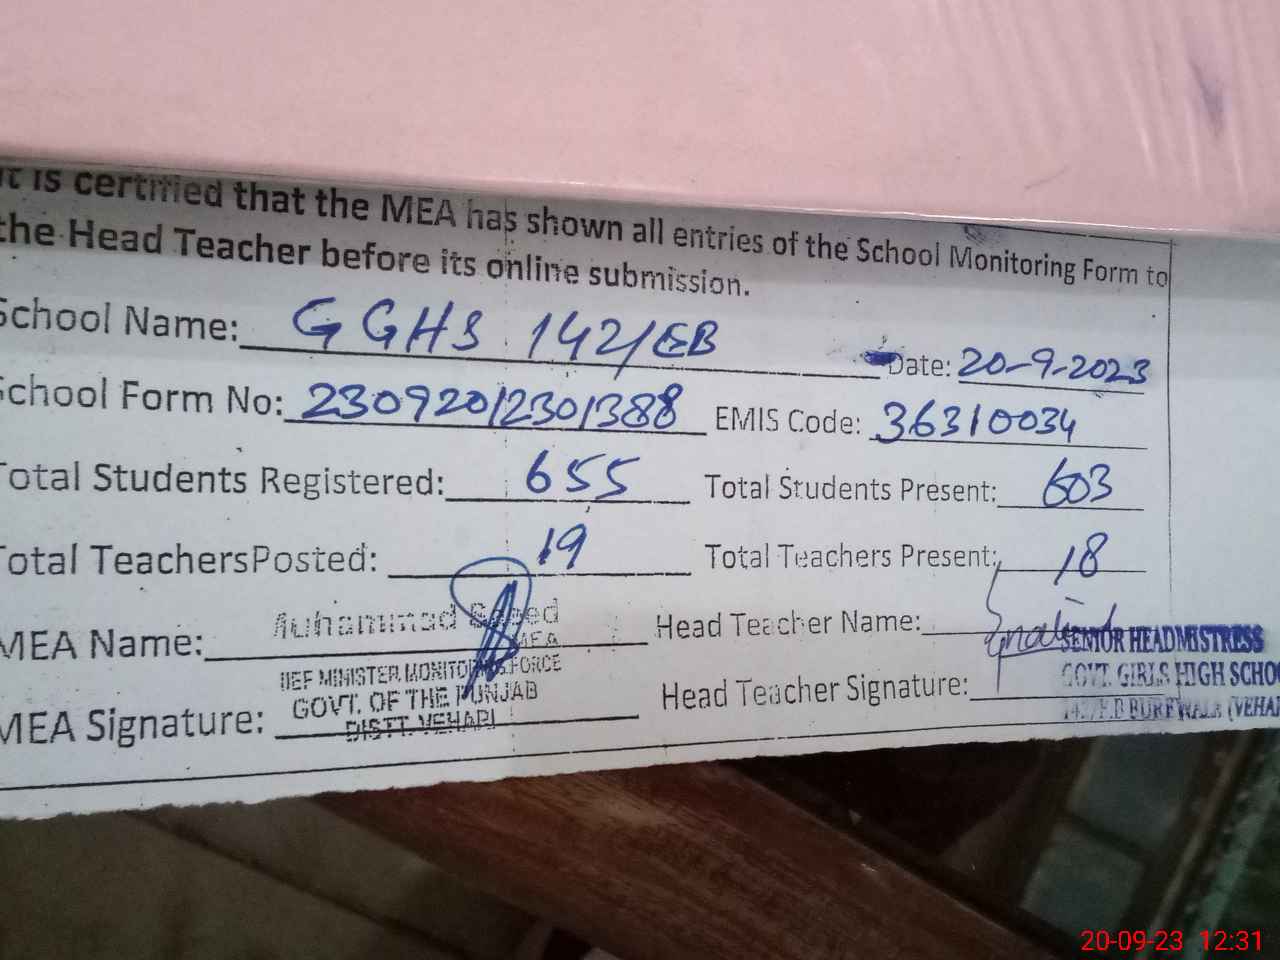 It is certified that the MEA has shown all entries of the School Monitoring Form to
the Head Teacher before its online submission.
School Name: GGHS 142/EB Date: 20-9-2023
School Form No: 23092012301388 EMIS Code: 36310034
Total Students Registered: 655 Total Students Present: 603
Total TeachersPosted: 19 Total Teachers Present: 18
MEA Name: Muhammad Saeed Head Teacher Name:
MEA
MINISTER MONITORING FORCE
GOVT. OF THE PUNJAB
DISTT. VEHARI
MEA Signature: Head Teacher Signature:
SENIOR HEADMISTRESS
GOVT. GIRLS HIGH SCHOO
BUREWALA (VEHAR
20-09-23 12:31